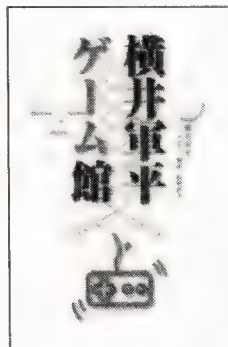 横井軍平
ゲーム館